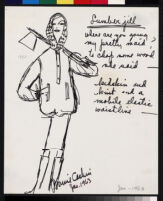 Lumber jill
where are you going
my pretty maid
To chop some wood
she said —
buckskin and
knit and a
mobile elastic
waistline
Bonnie Cashin
Jan. 1963
Jan - 1963